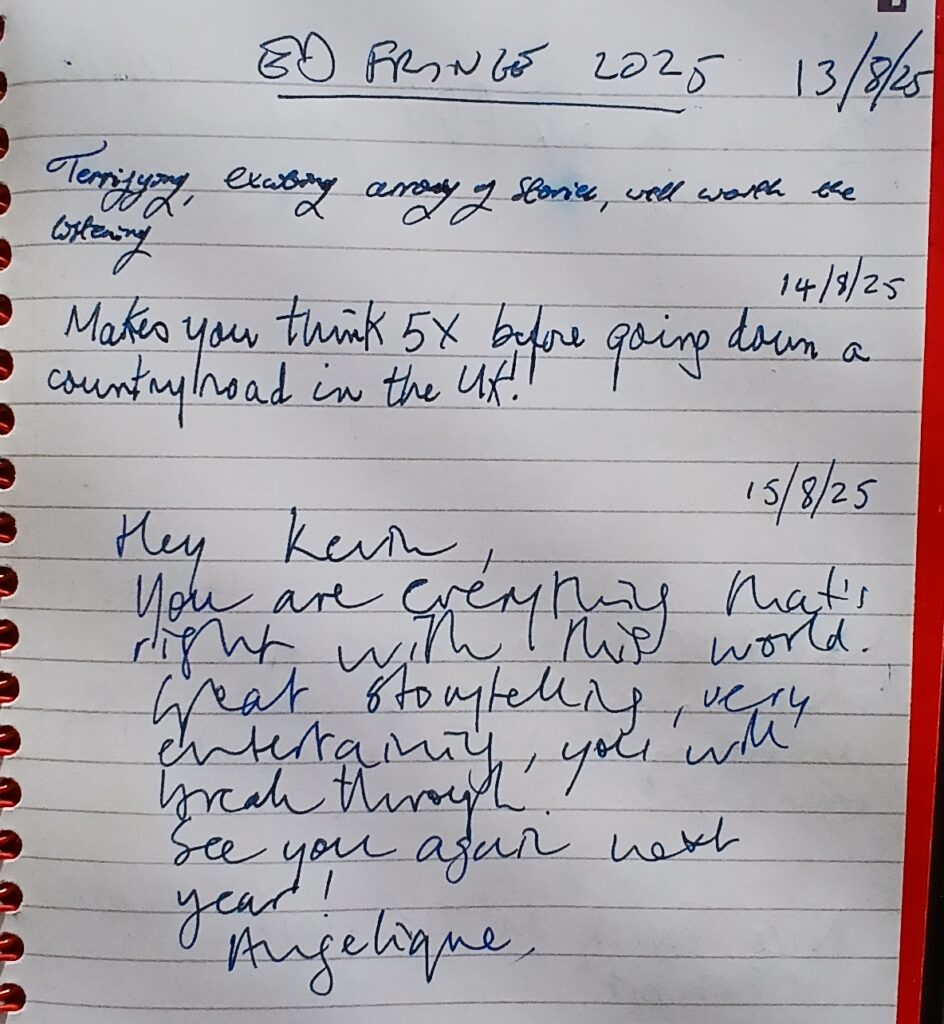 ED FRINGE 2025 13/8/25
Terrifying, exciting array of stories, well worth the
listening
14/8/25
Makes you think 5X before going down a
country road in the UK!
15/8/25
Hey Kevin,
You are everything that's
right with this world.
Great storytelling, very
entertaining, you will
break through!
See you again next
year!
Angelique,